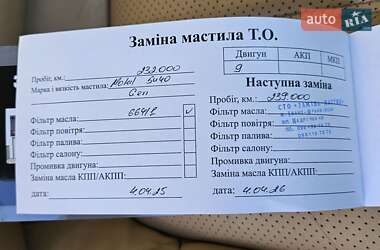 auto RIA
Заміна мастила Т.О.
Пробіг, км.: 232.000
Марка і вязкість мастила: Mobil 5w40
Фільтр масла:
Фільтр повітря:
Фільтр палива:
Фільтр салону:
Промивка двигуна:
Заміна масла КПП/АКПП:
дата: 4.04.25
Двигун АКП МКП
9
Наступна заміна
Пробіг, км.: 239.000
Фільтр масла:
Фільтр повітря:
Фільтр палива:
Фільтр салону:
Промивка двигуна:
Заміна масла КПП/АКПП:
дата: 4.04.26